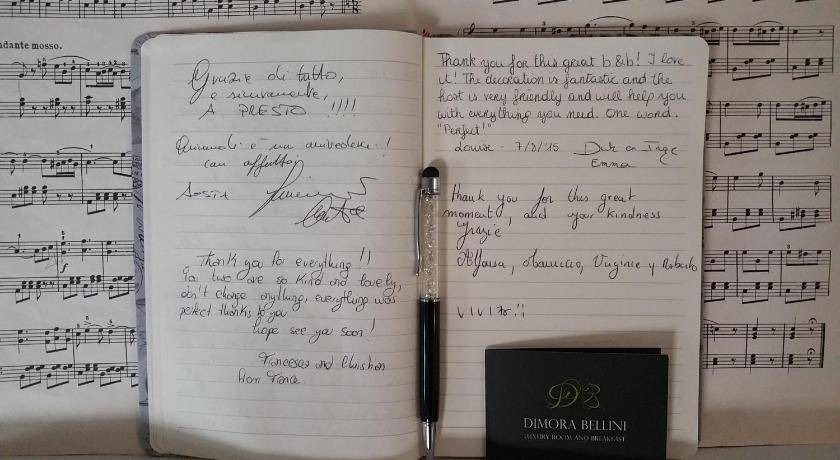 andante mosso.
Grazie di tutto,
e sicuramente,
A PRESTO !!!!
Quindi è un arrivederci!
con affetto,
Thank you for everything !!
You two are so kind and lovely,
don't change anything, everything was
perfect thanks to you
hope see you soon!
Francesca and Christian
from France.
Thank you for this great b&b! I love
it! The decoration is fantastic and the
host is very friendly and will help you
with everything you need. One word.
"Perfect!"
Louise - 7/3/15
Emma
thank you for this great
moment, and your kindness
Grazie
Virginie y Roberto
DIMORA BELLINI
LUXURY ROOM AND BREAKFAST